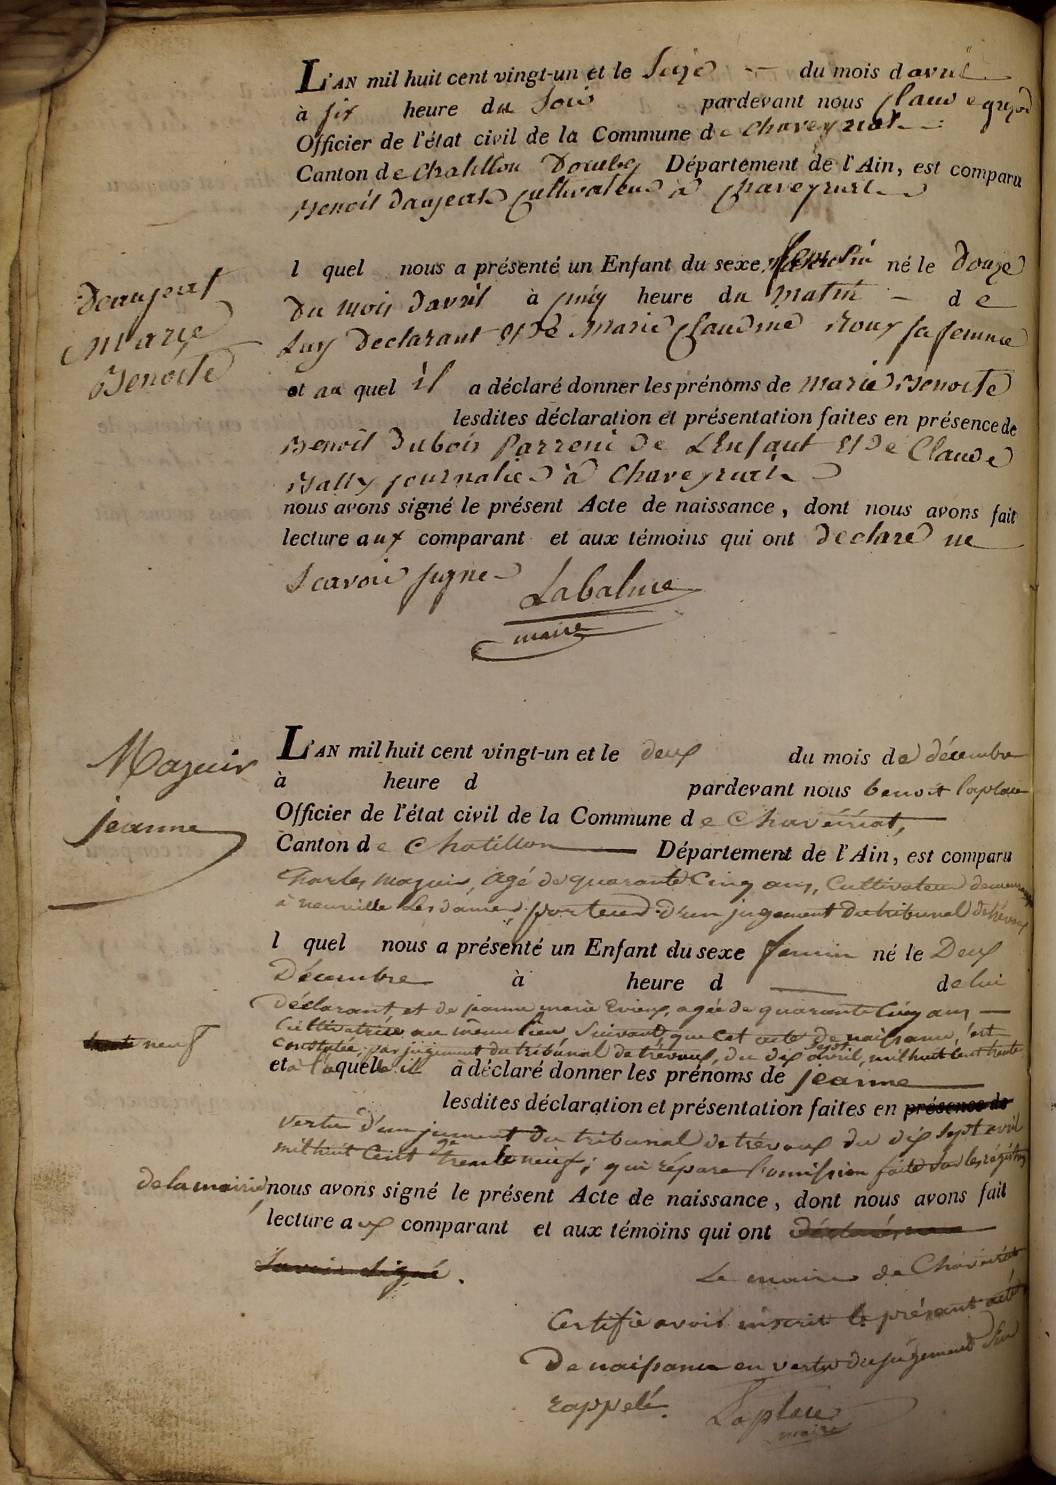 L'AN mil huit cent vingt-un et le Seize du mois d avril
à six heure du Soir pardevant nous
Officier de l'état civil de la Commune de chaveyriat
Canton de chatillon Dombes Département de l'Ain, est comparu
Benoit daujeat Cultivateur à chaveyriat
l quel nous a présenté un Enfant du sexe feminin né le douze
Du mois davril à cinq heure du matin de
Luy Declarant et de marie claudine Roux sa femme
et au quel il a déclaré donner les prénoms de marie Benoite
lesdites déclaration et présentation faites en présence de
Benoit Dubois Parrein de L'Enfant et de Claude
Bally journalier à Chaveyriat
nous avons signé le présent Acte de naissance, dont nous avons fait
lecture aux comparant et aux témoins qui ont declaré ne
Scavoir signer
Labalme
maire
Daujeat
marie
Benoite
L'AN mil huit cent vingt-un et le deux du mois de décembre
à heure d pardevant nous benoit laplace
Officier de l'état civil de la Commune de Chaveiriat,
Canton de Chatillon Département de l'Ain, est comparu
Charles Maguin, agé de quarante Cinq ans, Cultivateur
à neuville les dames, porteur d'un jugement du tribunal de trévoux
l quel nous a présenté un Enfant du sexe feminin né le Deux
Décembre à heure d de lui
déclarant et de jeanne marie agée de quarante Cinq ans
Cultivatrice au même lieu Suivant que cet acte de naissance, est
constatée par jugement du tribunal de trévoux, du dix Sept avril, mil huit cent trente
neuf
et à laquelle il a déclaré donner les prénoms de jeanne
lesdites déclaration et présentation faites en présence de
vertu d'un jument du tribunal de trévoux du dix Sept avril
mil huit Cent trente neuf; qui répare l'omission faite sur les régistres
de la mairie, nous avons signé le présent Acte de naissance, dont nous avons fait
lecture aux comparant et aux témoins qui ont déclaré, ne
Savoir signé.
Le maire de Chaveiriat
Certifie avoir inscrit le présent acte
De naissance en vertu du jugement Sus
rappelé.
Laplace
maire
Maguin
jeanne